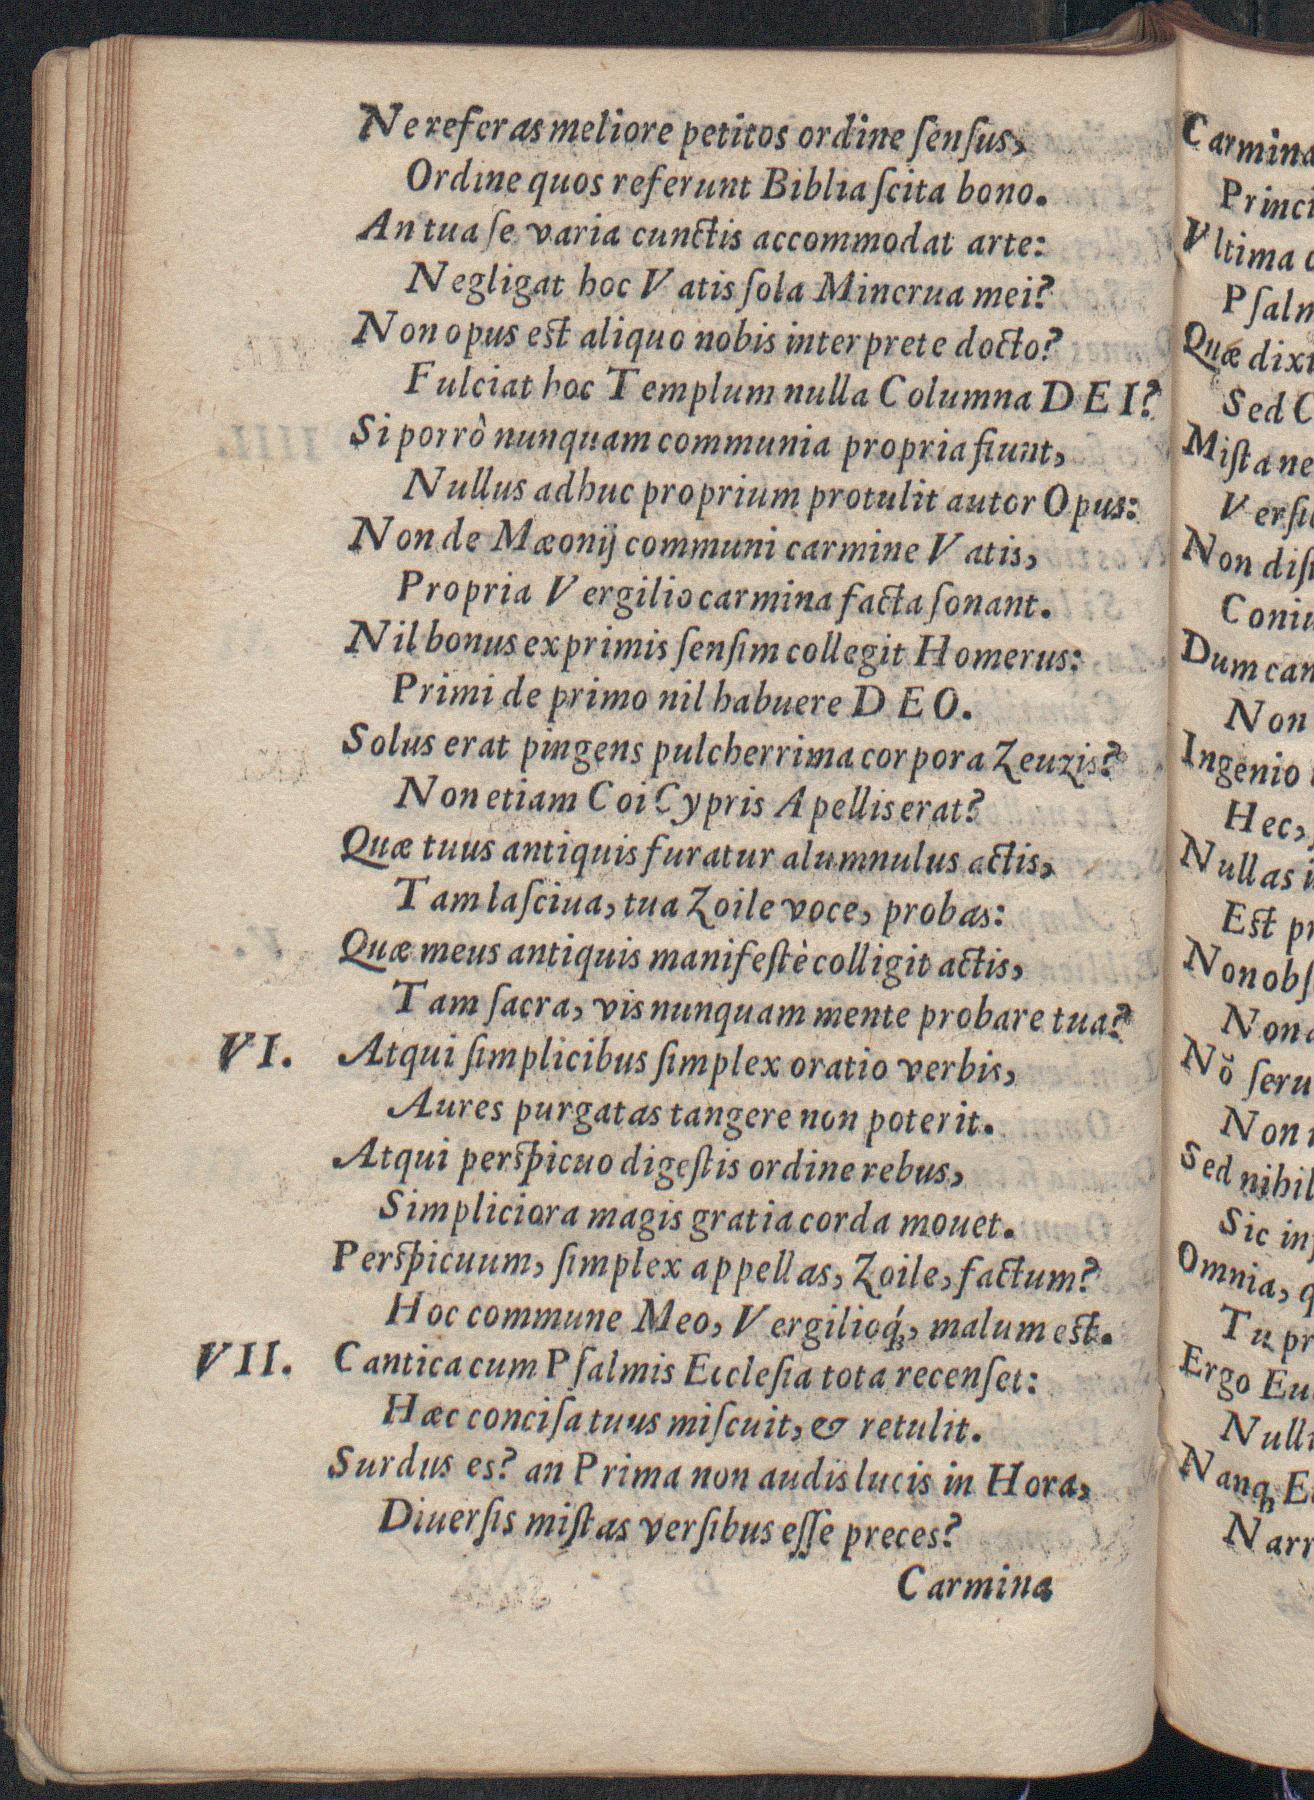 Ne referas meliore petitos ordine ſenſus,
Ordine quos referunt Biblia ſcita bono.
An tua ſe varia cunctis accommodat arte:
Negligat hoc Vatis ſola Minerua mei?
Non opus est aliquo nobis interprete docto?
Fulciat hoc Templum nulla Columna DEI?
Si porrò nunquam communia propria fiunt,
Nullus adhuc proprium protulit autor Opus:
Non de Mæonij communi carmine Vatis,
Propria Vergilio carmina facta ſonant.
Nil bonus ex primis ſenſim collegit Homerus:
Primi de primo nil habuere DEO.
Solus erat pingens pulcherrima corpora Zeuzis?
Non etiam Coi Cypris Apellis erat?
Quæ tuus antiquis furatur alumnulus actis,
Tam laſciua, tua Zoile voce, probas:
Quæ meus antiquis manifeſtè colligit actis,
Tam ſacra, vis nunquam mente probare tua?
VI. Atqui ſimplicibus ſimplex oratio verbis,
Aures purgatas tangere non poterit.
Atqui perſpicuo digeſtis ordine rebus,
Simpliciora magis gratia corda mouet.
Perſpicuum, ſimplex appellas, Zoile, factum?
Hoc commune Meo, Vergilioq́;, malum est.
VII. Cantica cum Pſalmis Eccleſia tota recenſet:
Hæc conciſa tuus miſcuit, & retulit.
Surdus es? an Prima non audis lucis in Hora,
Diuerſis miſtas verſibus eſſe preces?
Carmina
Carmina
Princi
Vltima
Pſalm
Quæ dixi
Sed
Miſta ne
Verſu
Non diſ
Coniu
Dum can
Non
Ingenio
Hec,
Nullas
Est pr
Non obſ
Non
Nõ ſeru
Non
Sed nihil
Sic inſ
Omnia, q
Tu pr
Ergo Eu
Nulli
Nanq; E
Narr